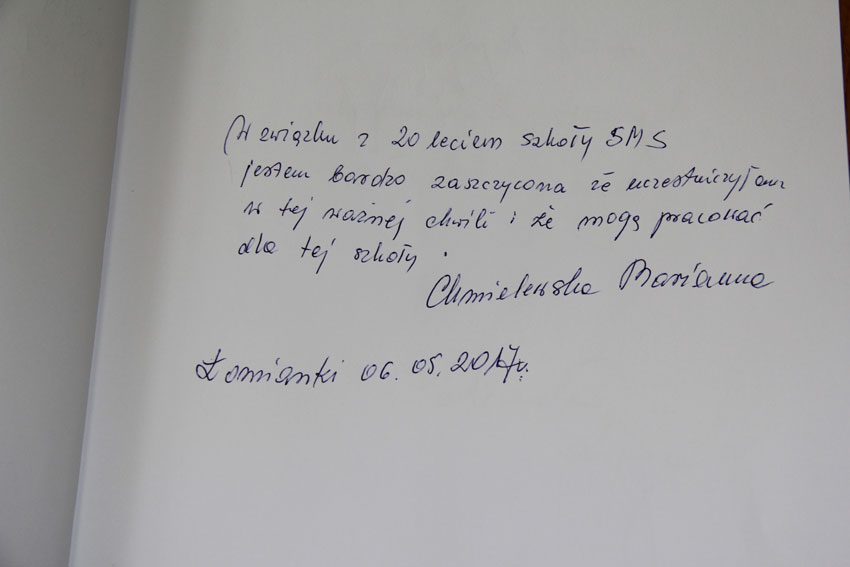 W związku z 20 leciem szkoły SMS
jestem bardzo zaszczycona że uczestniczyłam
w tej ważnej chwili i że mogę pracować
dla tej szkoły.
Chmielewska Marianna
Łomianki 06.05.2017r.